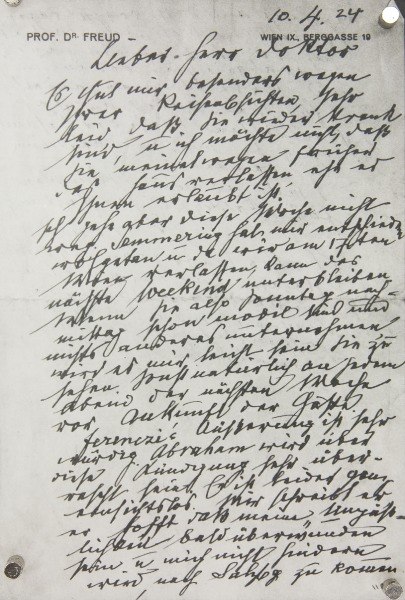 10.4.24
PROF. DR. FREUD – WIEN IX., BERGGASSE 19
Lieber Herr Doktor
Es thut mir, besonders wegen
Ihrer Reiseabsichten, sehr
leid, daß Sie wieder krank
sind, u ich möchte nicht, daß
Sie meinetwegen früher
das Haus verlassen ehe es
Ihnen erlaubt ist.
Ich gehe aber diese Woche nicht
weg. Semmering hat mir entschieden
wohlgetan u da wir am
verlassen, kann das
nächste Weekend unterbleiben
Wenn Sie also Sonntag nach-
mittag schon mobil sind und
nichts anderes unternehmen,
wird es mir leicht sein Sie zu
sehen. Sonst natürlich an jedem
Abend der nächsten Woche
vor Ankunft der Gäste
Ferenczi's Äußerung ist sehr
würdig Abraham wird über
diese Kündigung sehr über-
rascht sein. Er ist leider ganz
einsichtslos. Mir schreibt er
er hofft daß meine Unpäß-
lichkeit bald überwunden
sein u mich nicht hindern
wird, nach Salzbg zu kommen